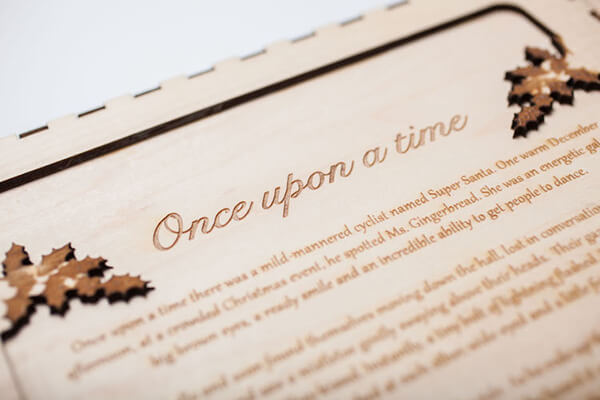 Once upon a time
Once upon a time there was a mild-mannered cyclist named Super Santa. One warm December
afternoon, at a crowded Christmas event, he spotted Ms. Gingerbread. She was an energetic gal
big brown eyes, a ready smile and an incredible ability to get people to dance.
and soon found themselves moving down the hall, lost in conversation
a mistletoe gently swaying above their heads. Their
Instantly, a tiny bolt of lightning flashed
at each other wide eyed and a little